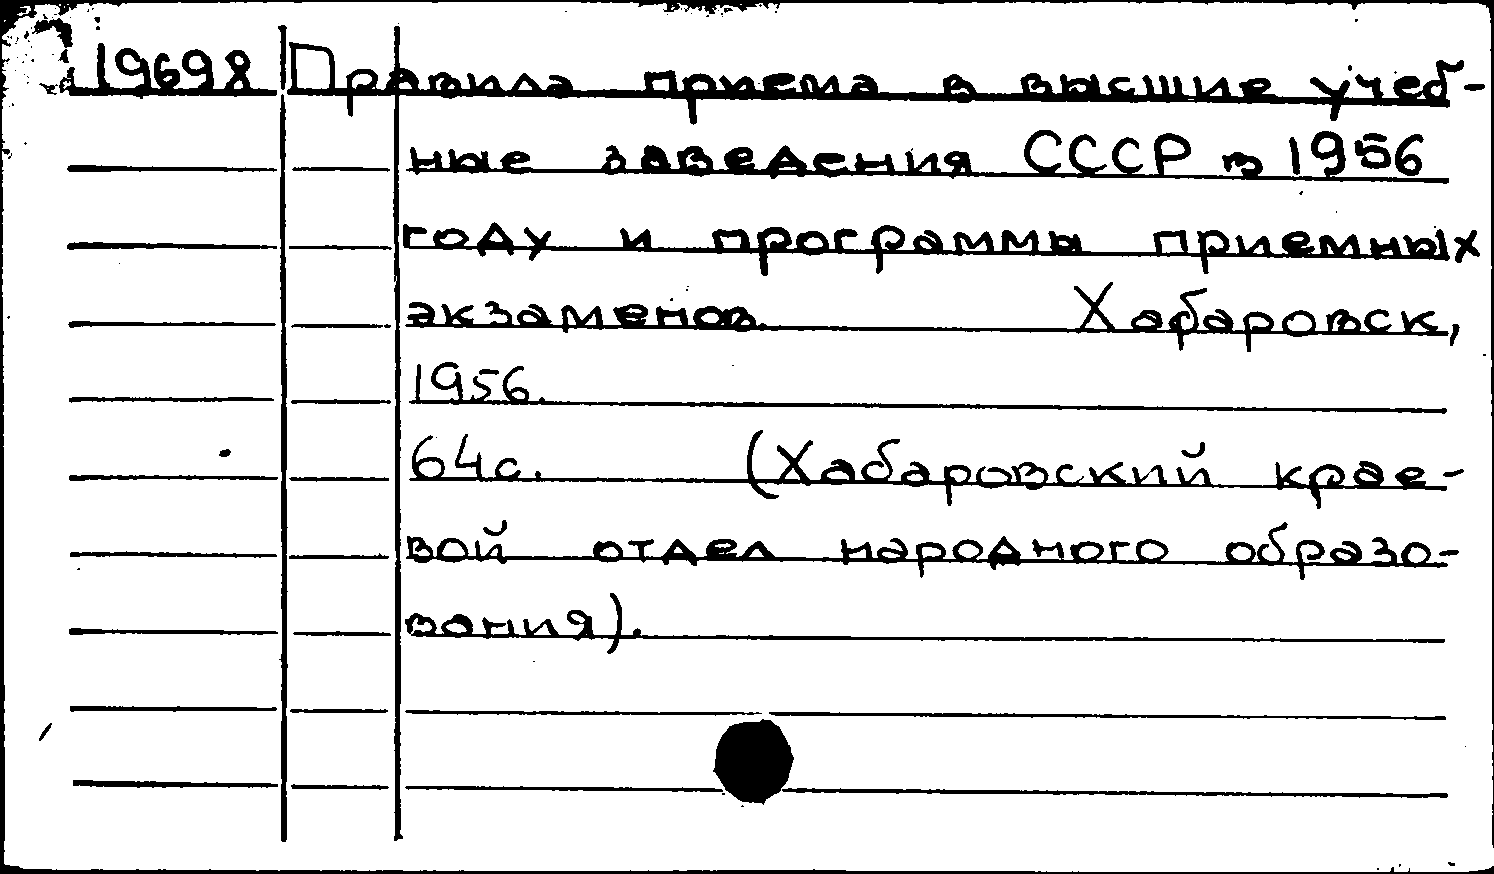 19698 Правила приема в высшие учеб-
ные заведения СССР в 1956
году и программы приемных
экзаменов. Хабаровск,
1956.
64с. (Хабаровский крае-
вой отдел народного образо-
вания).